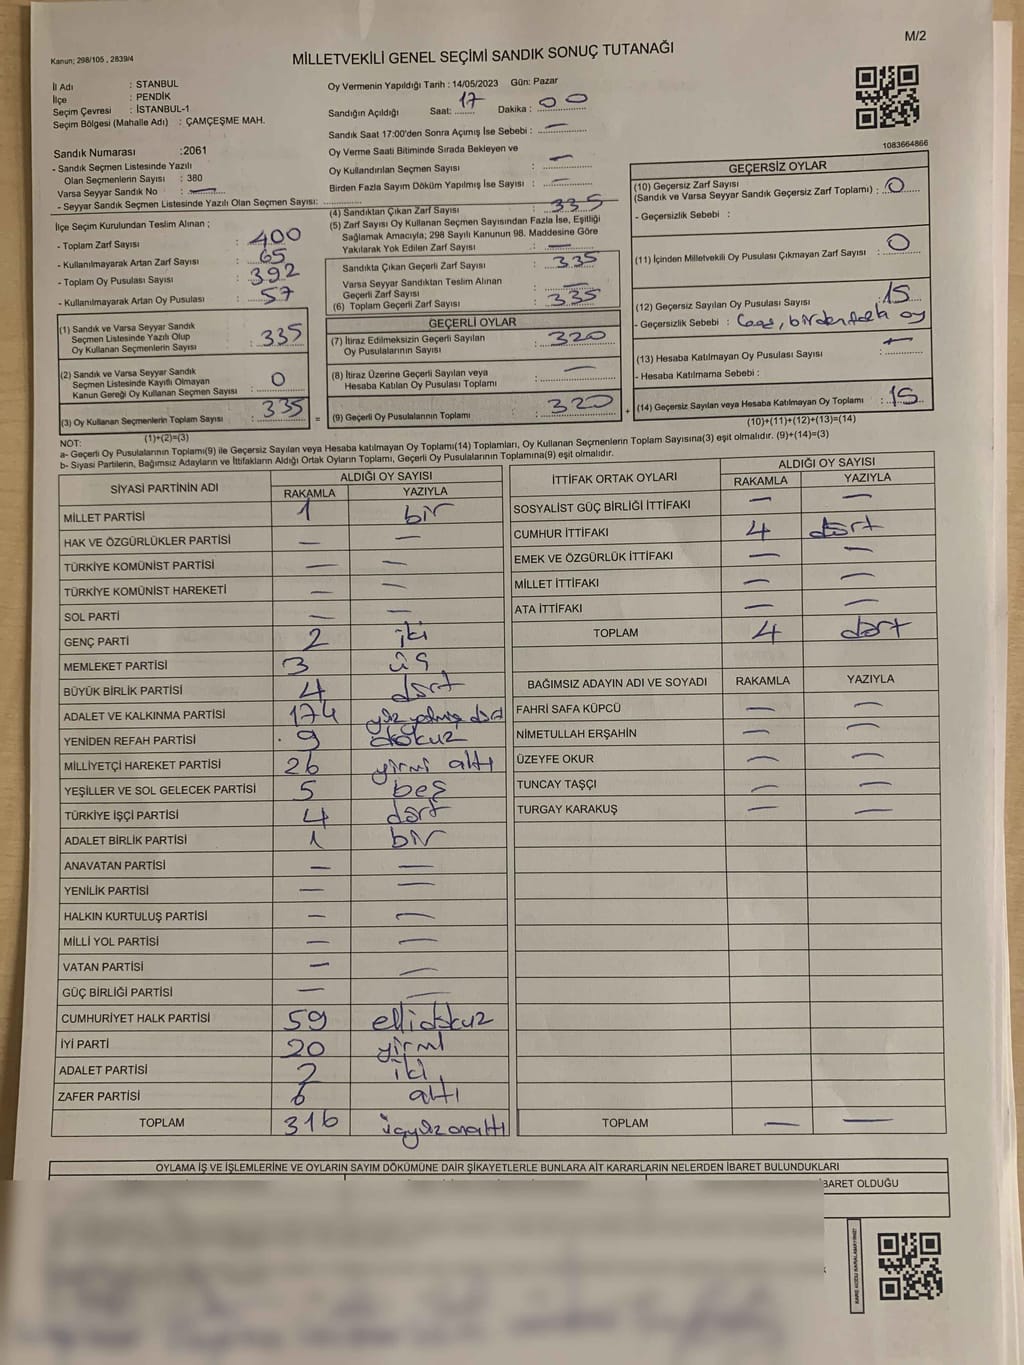 M/2
Kanun; 298/105 , 2839/4
MİLLETVEKİLİ GENEL SEÇİMİ SANDIK SONUÇ TUTANAĞI
İl Adı : STANBUL
İlçe : PENDİK
Seçim Çevresi : İSTANBUL-1
Seçim Bölgesi (Mahalle Adı) : ÇAMÇEŞME MAH.
Sandık Numarası :2061
- Sandık Seçmen Listesinde Yazılı
Olan Seçmenlerin Sayısı : 380
Varsa Seyyar Sandık No : —
- Seyyar Sandık Seçmen Listesinde Yazılı Olan Seçmen Sayısı:
Oy Vermenin Yapıldığı Tarih : 14/05/2023 Gün: Pazar
Sandığın Açıldığı Saat: 17 Dakika : 00
Sandık Saat 17:00'den Sonra Açımış İse Sebebi : —
Oy Verme Saati Bitiminde Sırada Bekleyen ve
Oy Kullandırılan Seçmen Sayısı : —
Birden Fazla Sayım Döküm Yapılmış İse Sayısı : —
1083664866
İlçe Seçim Kurulundan Teslim Alınan ;
- Toplam Zarf Sayısı : 400
- Kullanılmayarak Artan Zarf Sayısı : 65
- Toplam Oy Pusulası Sayısı : 392
- Kullanılmayarak Artan Oy Pusulası : 57
(1) Sandık ve Varsa Seyyar Sandık
Seçmen Listesinde Yazılı Olup
Oy Kullanan Seçmenlerin Sayısı : 335
(2) Sandık ve Varsa Seyyar Sandık
Seçmen Listesinde Kayıtlı Olmayan
Kanun Gereği Oy Kullanan Seçmen Sayısı : 0
(3) Oy Kullanan Seçmenlerin Toplam Sayısı : 335
(1)+(2)=(3)
(4) Sandıktan Çıkan Zarf Sayısı : 335
(5) Zarf Sayısı Oy Kullanan Seçmen Sayısından Fazla İse, Eşitliği
Sağlamak Amacıyla; 298 Sayılı Kanunun 98. Maddesine Göre
Yakılarak Yok Edilen Zarf Sayısı : —
Sandıkta Çıkan Geçerli Zarf Sayısı : 335
Varsa Seyyar Sandıktan Teslim Alınan
Geçerli Zarf Sayısı : —
(6) Toplam Geçerli Zarf Sayısı : 335
GEÇERLİ OYLAR
(7) İtiraz Edilmeksizin Geçerli Sayılan
Oy Pusulalarının Sayısı : 320
(8) İtiraz Üzerine Geçerli Sayılan veya
Hesaba Katılan Oy Pusulası Toplamı : —
= (9) Geçerli Oy Pusulalarının Toplamı : 320
GEÇERSİZ OYLAR
(10) Geçersiz Zarf Sayısı
(Sandık ve Varsa Seyyar Sandık Geçersiz Zarf Toplamı) : 0
- Geçersizlik Sebebi :
(11) İçinden Milletvekili Oy Pusulası Çıkmayan Zarf Sayısı : 0
(12) Geçersiz Sayılan Oy Pusulası Sayısı : 15
- Geçersizlik Sebebi : birden fazla oy
(13) Hesaba Katılmayan Oy Pusulası Sayısı : —
- Hesaba Katılmama Sebebi :
+ (14) Geçersiz Sayılan veya Hesaba Katılmayan Oy Toplamı : 15
(10)+(11)+(12)+(13)=(14)
NOT:
a- Geçerli Oy Pusulalarının Toplamı(9) ile Geçersiz Sayılan veya Hesaba katılmayan Oy Toplamı(14) Toplamları, Oy Kullanan Seçmenlerin Toplam Sayısına(3) eşit olmalıdır. (9)+(14)=(3)
b- Siyasi Partilerin, Bağımsız Adayların ve İttifakların Aldığı Ortak Oyların Toplamı, Geçerli Oy Pusulalarının Toplamına(9) eşit olmalıdır.
SİYASİ PARTİNİN ADI ALDIĞI OY SAYISI
RAKAMLA YAZIYLA
MİLLET PARTİSİ 1 bir
HAK VE ÖZGÜRLÜKLER PARTİSİ — —
TÜRKİYE KOMÜNİST PARTİSİ — —
TÜRKİYE KOMÜNİST HAREKETİ — —
SOL PARTİ — —
GENÇ PARTİ 2 iki
MEMLEKET PARTİSİ 3 üç
BÜYÜK BİRLİK PARTİSİ 4 dört
ADALET VE KALKINMA PARTİSİ 174 yüz yetmiş dört
YENİDEN REFAH PARTİSİ 9 dokuz
MİLLİYETÇİ HAREKET PARTİSİ 26 yirmi altı
YEŞİLLER VE SOL GELECEK PARTİSİ 5 beş
TÜRKİYE İŞÇİ PARTİSİ 4 dört
ADALET BİRLİK PARTİSİ 1 bir
ANAVATAN PARTİSİ — —
YENİLİK PARTİSİ — —
HALKIN KURTULUŞ PARTİSİ — —
MİLLİ YOL PARTİSİ — —
VATAN PARTİSİ — —
GÜÇ BİRLİĞİ PARTİSİ — —
CUMHURİYET HALK PARTİSİ 59 ellidokuz
İYİ PARTİ 20 yirmi
ADALET PARTİSİ 2 iki
ZAFER PARTİSİ 6 altı
TOPLAM 316 üçyüzonaltı
İTTİFAK ORTAK OYLARI ALDIĞI OY SAYISI
RAKAMLA YAZIYLA
SOSYALİST GÜÇ BİRLİĞİ İTTİFAKI — —
CUMHUR İTTİFAKI 4 dört
EMEK VE ÖZGÜRLÜK İTTİFAKI — —
MİLLET İTTİFAKI — —
ATA İTTİFAKI — —
TOPLAM 4 dört
BAĞIMSIZ ADAYIN ADI VE SOYADI RAKAMLA YAZIYLA
FAHRİ SAFA KÜPCÜ — —
NİMETULLAH ERŞAHİN — —
ÜZEYFE OKUR — —
TUNCAY TAŞÇI — —
TURGAY KARAKUŞ — —
TOPLAM — —
OYLAMA İŞ VE İŞLEMLERİNE VE OYLARIN SAYIM DÖKÜMÜNE DAİR ŞİKAYETLERLE BUNLARA AİT KARARLARIN NELERDEN İBARET BULUNDUKLARI
BARET OLDUĞU
KARE KODU KARALAMAYINIZ!